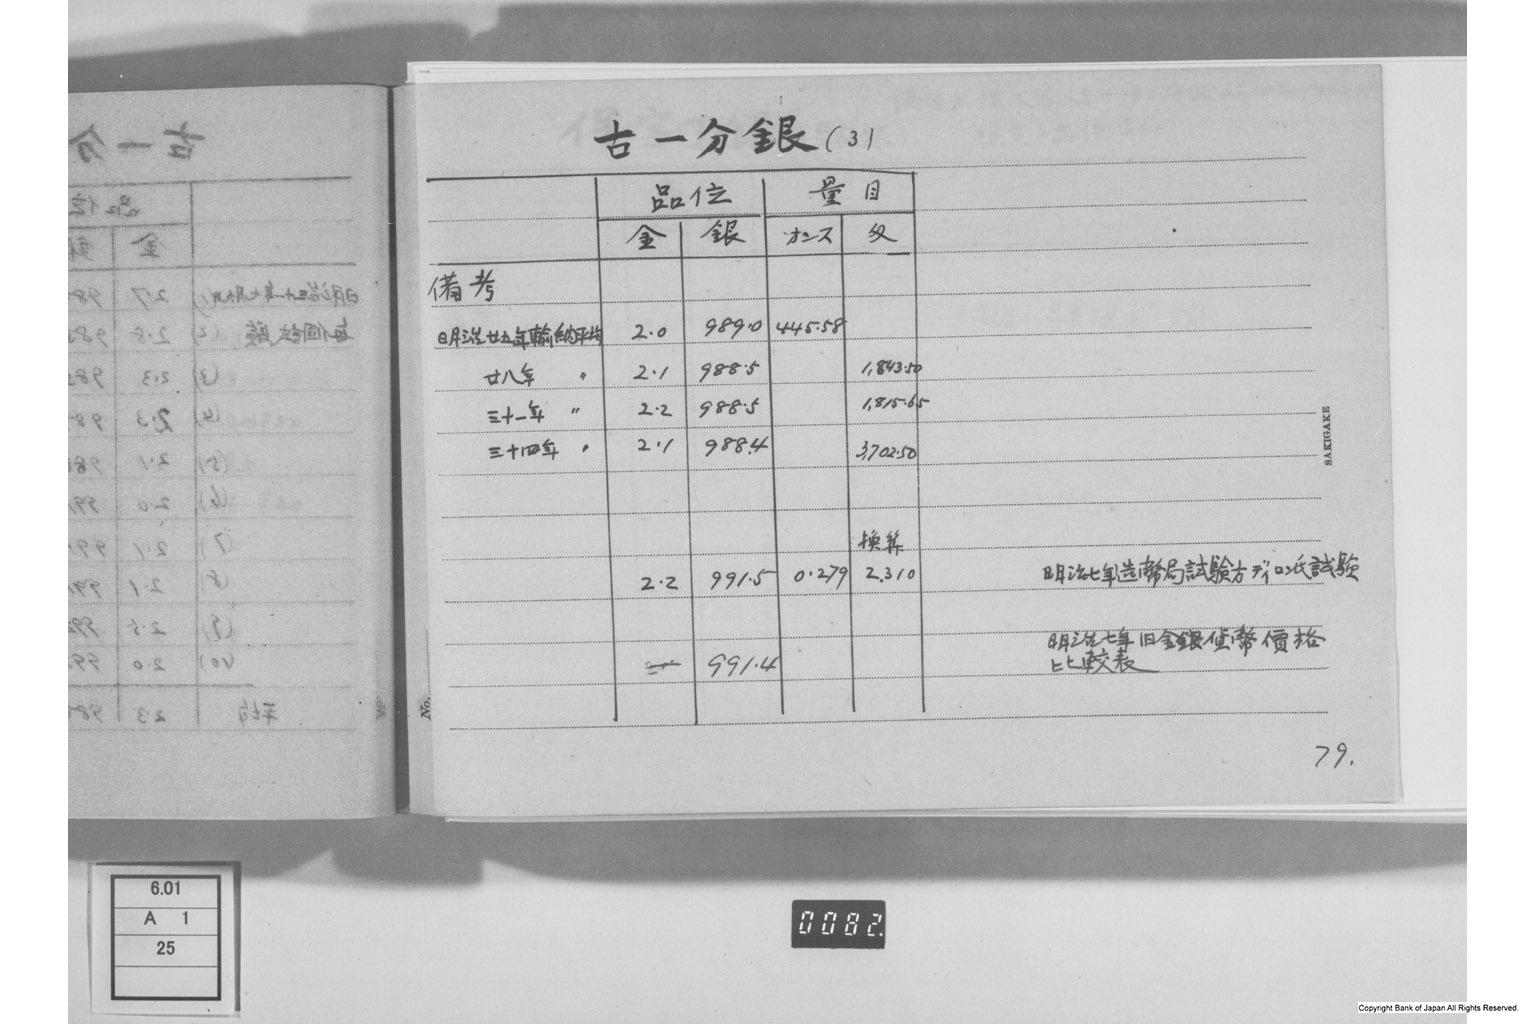 古一分銀(3)
品位 量目
金 銀 オンス 匁
備考
明治廿五年輸納平均 2.0 989.0 445.58
廿八年 〃 2.1 988.5 1,843.50
三十一年 〃 2.2 988.5 1,815.65
三十四年 〃 2.1 988.4 3,702.50
換算
2.2 991.5 0.279 2.310 明治七年造幣局試験方ディロン氏試験
991.4 明治七年旧金銀貨幣價格
比較表
SAKIGAKE
No.
79.
古一分
品位
金
明治三十一年七月
2.7
毎個試験 (2) 2.8
(3) 2.3
(4) 2.3
(5) 2.1
(6) 2.0
(7) 2.1
(8) 2.1
(9) 2.5
(10) 2.0
平均 2.3
6.01
A 1
25
0082.
Copyright Bank of Japan All Rights Reserved.